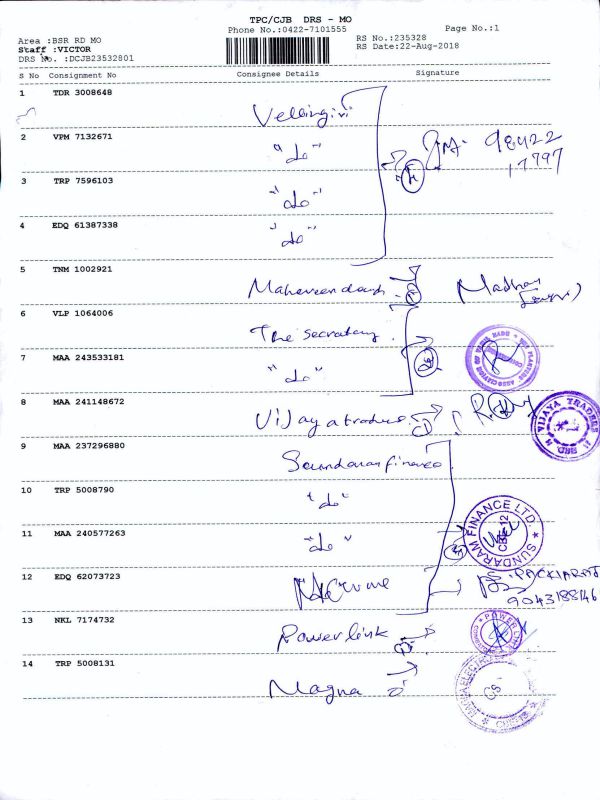 TPC/CJB DRS - MO
Phone No.:0422-7101555 Page No.:1
Area :BSR RD MO
Staff :VICTOR
DRS No. :DCJB23532801
RS No.:235328
RS Date:22-Aug-2018
S No Consignment No Consignee Details Signature
1 TDR 3008648
Vellingiri
2 VPM 7132671
"do" 98422
17797
3 TRP 7596103
"do"
4 EDQ 61387338
"do"
5 TNM 1002921
Madhan
6 VLP 1064006
The Secretary
7 MAA 243533181
"do"
8 MAA 241148672
Vijaya traders
VIJAYA TRADERS
9 MAA 237296880
Sundaram finance
10 TRP 5008790
"do"
SUNDARAM FINANCE LTD.
CBE-12
11 MAA 240577263
"do"
12 EDQ 62073723
PACKIARAJ
9043188146
13 NKL 7174732
Powerlink
POWER LINK
14 TRP 5008131
Magna
CS